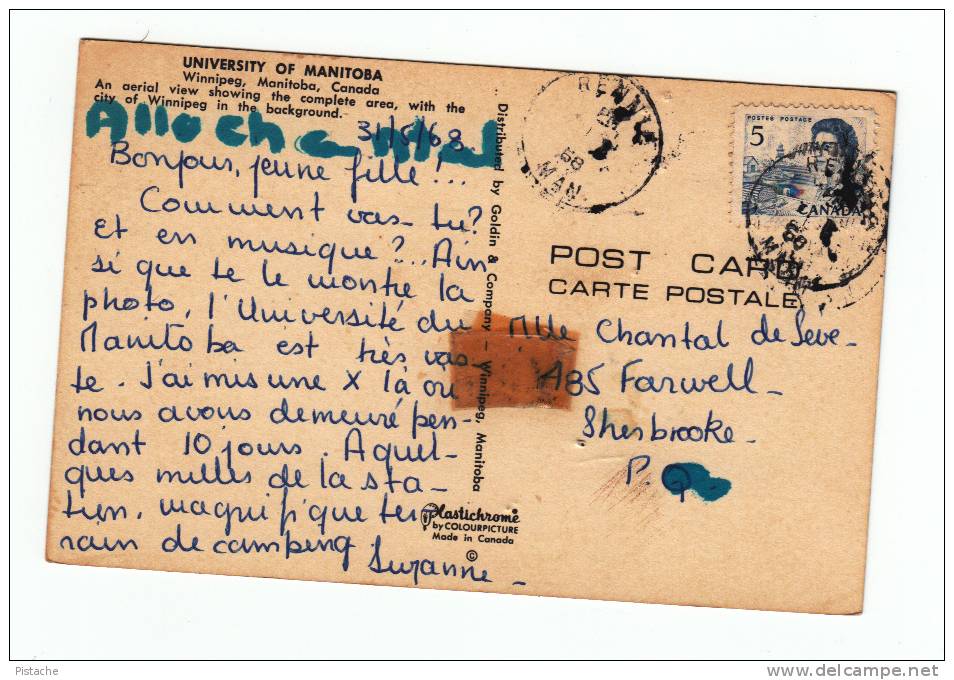 UNIVERSITY OF MANITOBA
Winnipeg, Manitoba, Canada
An aerial view showing the complete area, with the
city of Winnipeg in the background.
Allo
31/5/68
Bonjour, jeune fille!...
Comment vas-tu?
Et en musique?.. Ain
si que te le montre la
photo, l'Université du
Manitoba est très vas
te. J'ai mis une X là où
nous avons demeuré pen-
dant 10 jours. A quel-
ques milles de la sta-
tion, magnifique ter
rain de camping.
Suzanne -
Distributed by Goldin & Company - Winnipeg, Manitoba
Plastichrome
by COLOURPICTURE
Made in Canada
©
RENNIE
68
MAN.
POSTES POSTAGE
5
CANADA
68
POST CARD
CARTE POSTALE
Mlle Chantal de Seve-
485 Farwell-
Sherbrooke-
P.Q.
Pistache
www.delcampe.net